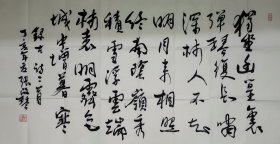 獨坐幽篁裏
彈琴復長嘯
深林人不知
明月來相照
终南陰嶺秀
積雪浮雲端
林表明霽色
城中增暮寒